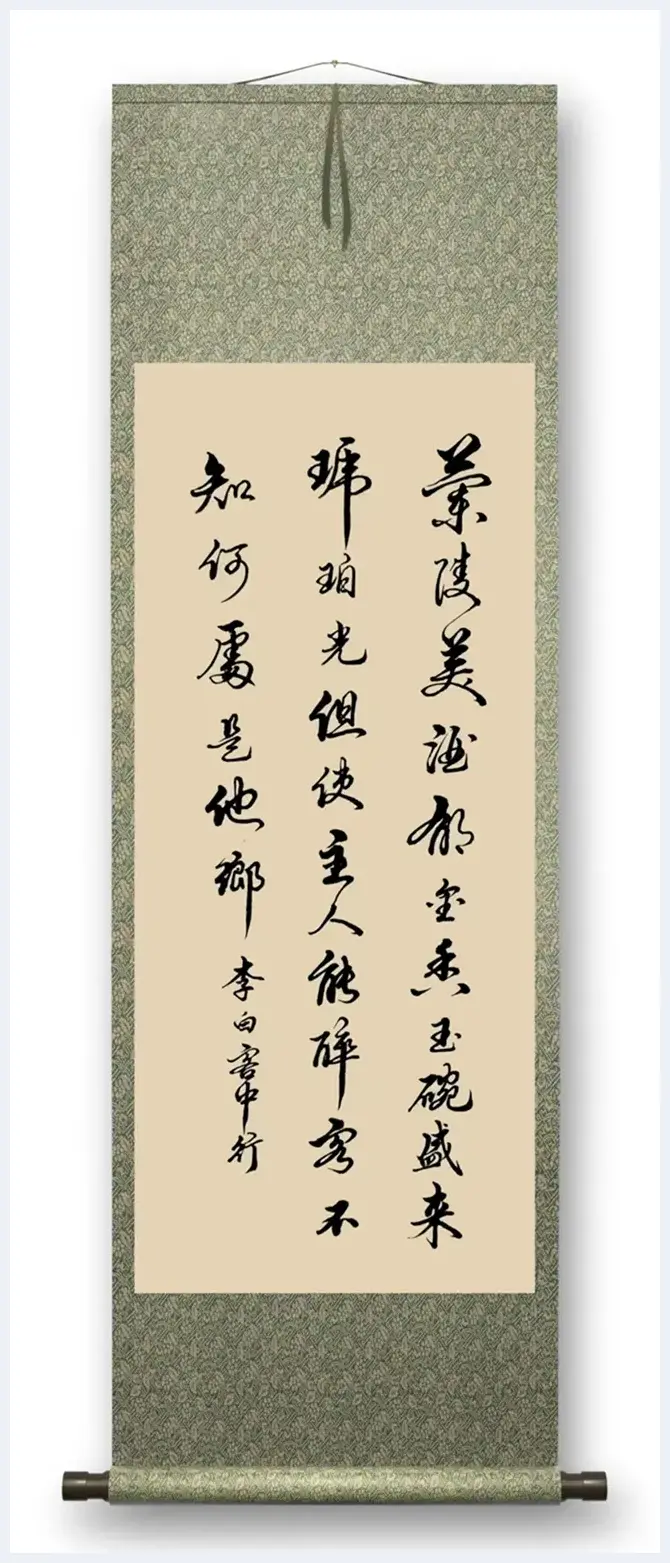 蘭陵美酒郁金香玉碗盛来
琥珀光但使主人能醉客不
知何處是他鄉李白客中行